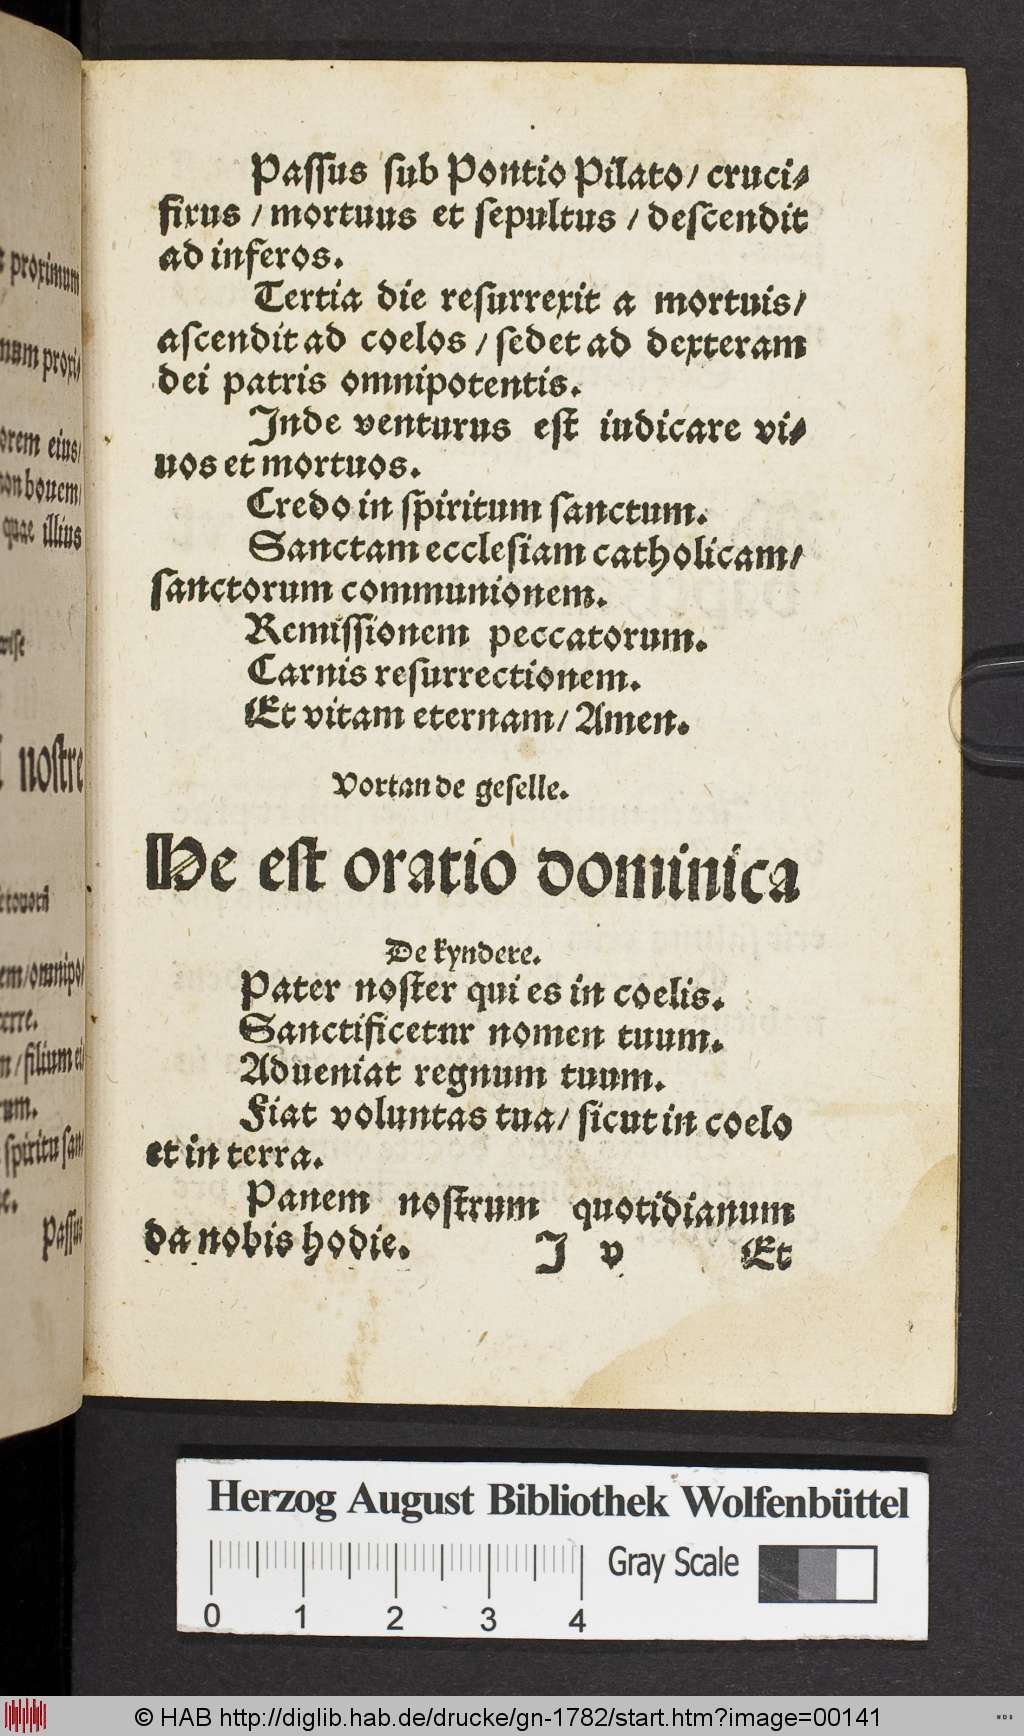 t proximum
num proxi/
orem eius/
non bouem/
quae illius
wise
i nostre
em/omnipo/
terre.
n/filium ei
rum.
spiritu san/
e.
Passus
Passus sub Pontio Pilato/ cruci⸗
fixus / mortuus et sepultus / descendit
ad inferos.
Tertia die resurrexit a mortuis/
ascendit ad coelos / sedet ad dexteram
dei patris omnipotentis.
Inde venturus est iudicare vi⸗
uos et mortuos.
Credo in spiritum sanctum.
Sanctam ecclesiam catholicam/
sanctorum communionem.
Remissionem peccatorum.
Carnis resurrectionem.
Et vitam eternam/ Amen.
Vortan de geselle.
He est oratio dominica
De kyndere.
Pater noster qui es in coelis.
Sanctificetnr nomen tuum.
Adueniat regnum tuum.
Fiat voluntas tua/ sicut in coelo
et in terra.
Panem nostrum quotidianum
da nobis hodie. J v Et
Herzog August Bibliothek Wolfenbüttel
Gray Scale
0 1 2 3 4
© HAB http://diglib.hab.de/drucke/gn-1782/start.htm?image=00141